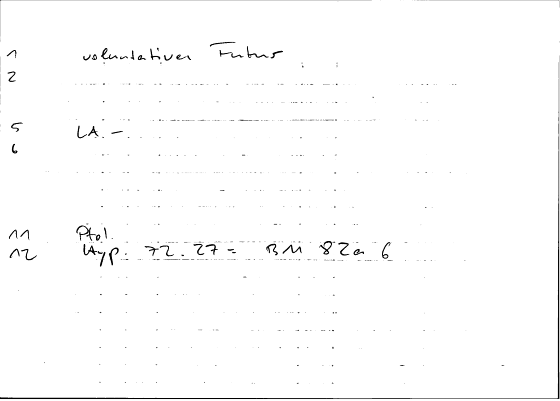 1 voluntativer Futur
2
5 LA. -
6
11 Ptol.
12 Hyp. 72.27 = BM 82a 6